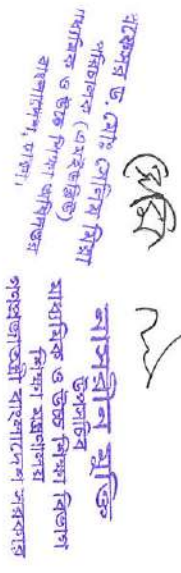 প্রফেসর ড. মোঃ সেলিম মিয়া
পরিচালক (এমইউইউ)
মাধ্যমিক ও উচ্চ শিক্ষা অধিদপ্তর
বাংলাদেশ, ঢাকা।
নাসরীন মুক্তি
উপসচিব
মাধ্যমিক ও উচ্চ শিক্ষা বিভাগ
শিক্ষা মন্ত্রণালয়
গণপ্রজাতন্ত্রী বাংলাদেশ সরকার